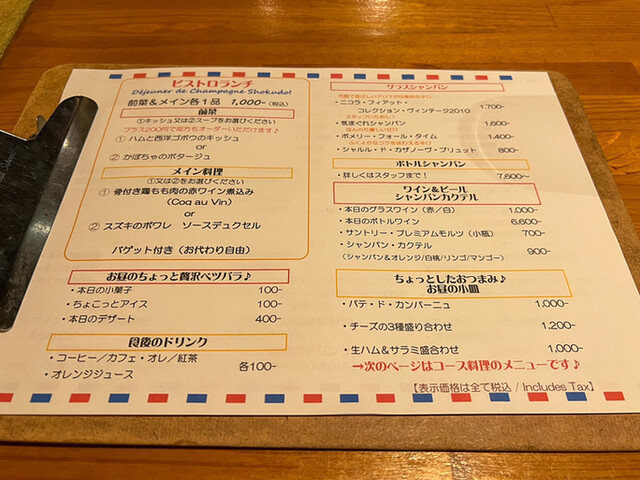 ビストロランチ
Déjeuner de Champagne Shokudo!
前菜&メイン各1品 1,000-(税込)
前菜
①キッシュ又は②スープをお選びください
プラス200円で両方もオーダーいただけます♪
① ハムと西洋ゴボウのキッシュ
or
② かぼちゃのポタージュ
メイン料理
①又は②をお選びください
① 骨付き鶏もも肉の赤ワイン煮込み
(Coq au Vin)
or
② スズキのポワレ ソースデュクセル
バゲット付き(お代わり自由)
お昼のちょっと贅沢ベツバラ♪
・本日の小菓子 100-
・ちょこっとアイス 100-
・本日のデザート 400-
食後のドリンク
・コーヒー/カフェ・オレ/紅茶
・オレンジジュース 各100-
グラスシャンパン
・ニコラ・フィアット・
コレクション・ヴィンテージ2010 1,700-
スタッフいちおし!
・気まぐれシャンパン 1,600-
ほんのり優しい甘口
・ポメリー・フォール・タイム 1,400-
ふくよかなコクを味わえる辛口
・シャルル・ド・カザノーヴ・ブリュット 800-
ボトルシャンパン
・詳しくはスタッフまで! 7,600~
ワイン&ビール
シャンパンカクテル
・本日のグラスワイン(赤/白) 1,000-
・本日のボトルワイン 6,600-
・サントリー・プレミアムモルツ(小瓶) 700-
・シャンパン・カクテル 900-
(シャンパン&オレンジ/白桃/リンゴ/マンゴー)
ちょっとしたおつまみ♪
お昼の小皿
・パテ・ド・カンパーニュ 1,000-
・チーズの3種盛り合わせ 1,200-
・生ハム&サラミ盛合わせ 1,000-
→次のページはコース料理のメニューです♪
【表示価格は全て税込 / Includes Tax】